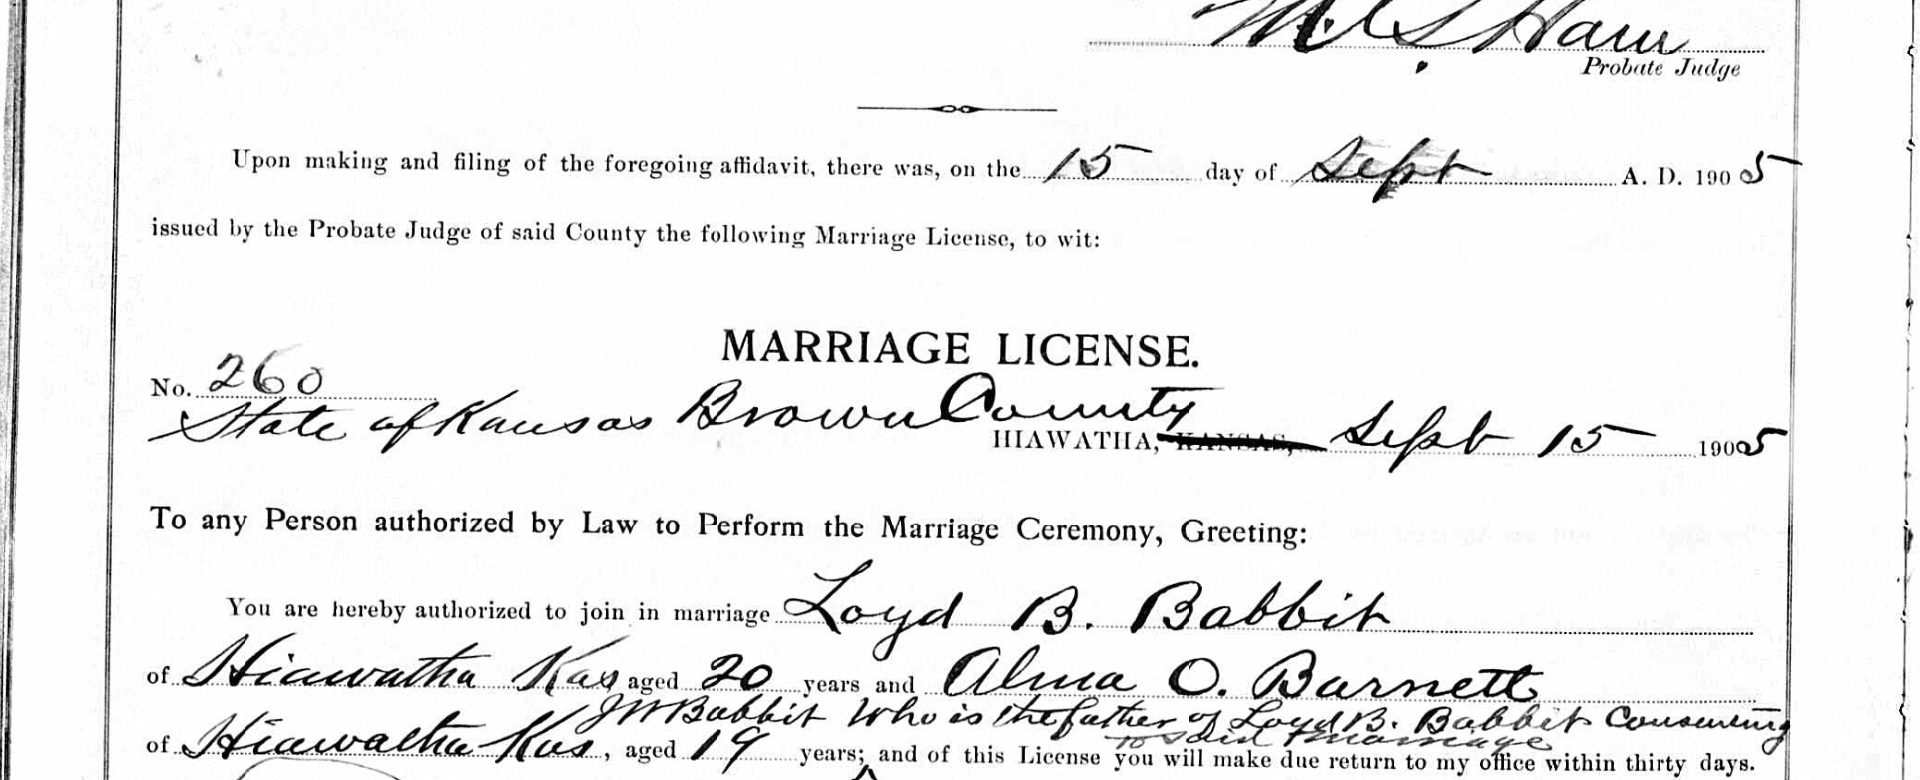 M. S. Ham
Probate Judge
Upon making and filing of the foregoing affidavit, there was, on the 15 day of Sept A. D. 1905
issued by the Probate Judge of said County the following Marriage License, to wit:
MARRIAGE LICENSE.
No. 260
State of Kansas Brown County
HIAWATHA, KANSAS, Sept 15 1905
To any Person authorized by Law to Perform the Marriage Ceremony, Greeting:
You are hereby authorized to join in marriage Loyd B. Babbit
of Hiawatha Kas aged 20 years and Alma O. Barnett
J W Babbit who is the father of Loyd B. Babbit Consenting
to said marriage
of Hiawatha Kas, aged 19 years; and of this License you will make due return to my office within thirty days.